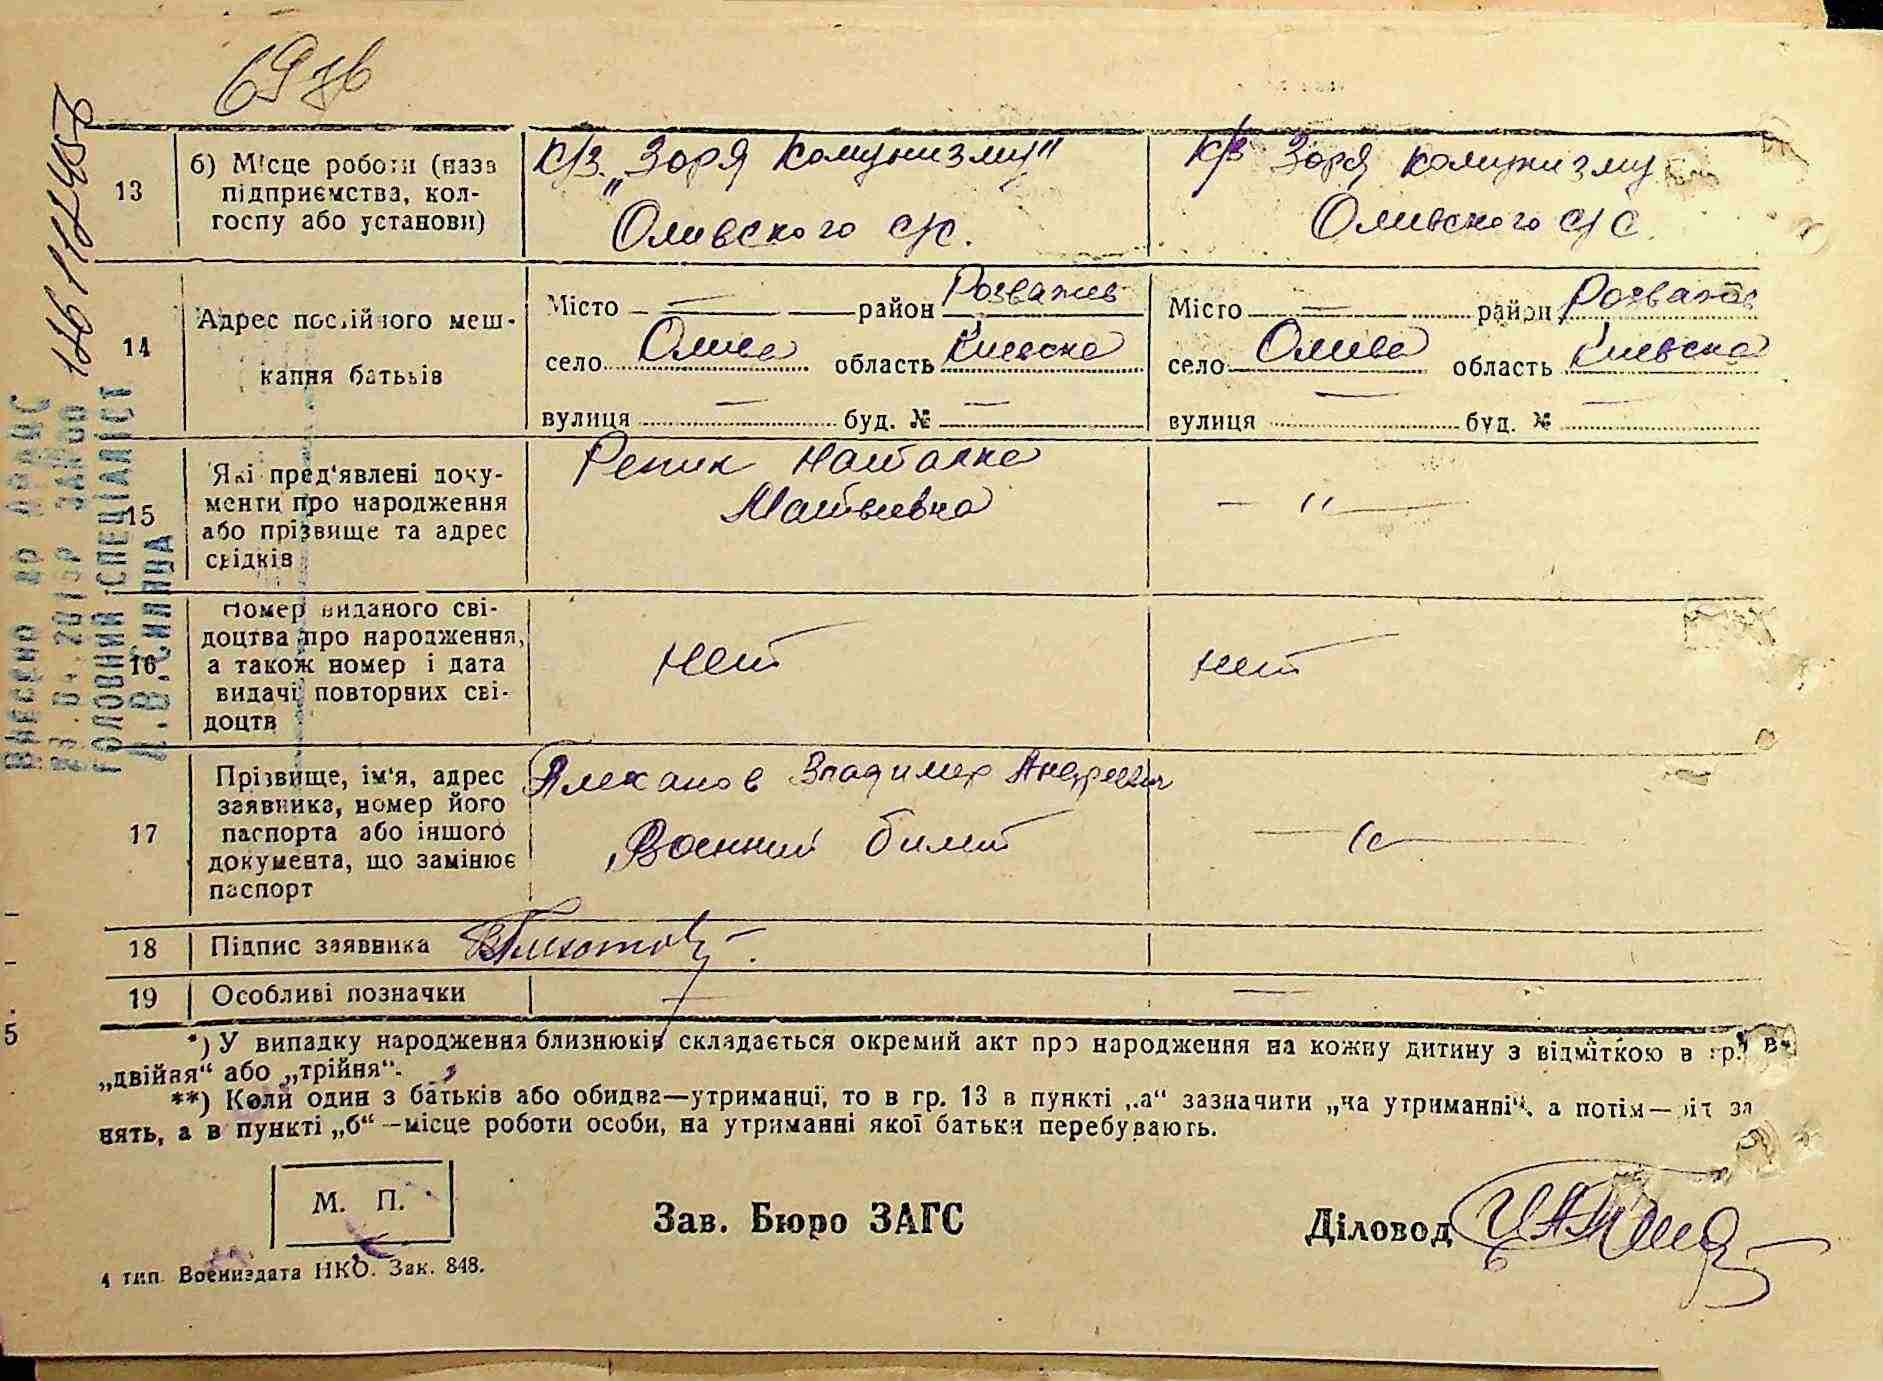 69
13
б) Місце роботи (назв
підприємства, кол-
госпу або установи)
к/з. „Зоря комунизму"
Оливского с/с.
к/з Зоря комунизму
Оливского с/с
14
Адрес постійного меш-
кання батьків
Місто — район Розважив
село Олива область Киевска
вулиця — буд. № —
Місто — район Розважив
село Олива область Киевска
вулиця — буд. № —
15
Які пред'явлені доку-
менти про народження
або прізвище та адрес
свідків
Репик Наталка
Матвивна
— " —
16
Номер виданого сві-
доцтва про народження,
а також номер і дата
видачі повторних сві-
доцтв
нет
нет
17
Прізвище, ім'я, адрес
заявника, номер його
паспорта або іншого
документа, що замінює
паспорт
Плеханов Владимир Андреевич
Военний билет
— " —
18 Підпис заявника
19 Особливі позначки — —
*) У випадку народження близнюків складається окремий акт про народження на кожну дитину з відміткою в гр.
„двійня" або „трійня".
**) Коли один з батьків або обидва—утриманці, то в гр. 13 в пункті „а" зазначити „на утриманні", а потім— за
нять, а в пункті „б"—місце роботи особи, на утриманні якої батьки перебувають.
М. П.
Зав. Бюро ЗАГС
Діловод
4 тип. Воениздата НКО. Зак. 848.
Внесено до ДРАЦС
ГОЛОВНИЙ СПЕЦІАЛІСТ
5